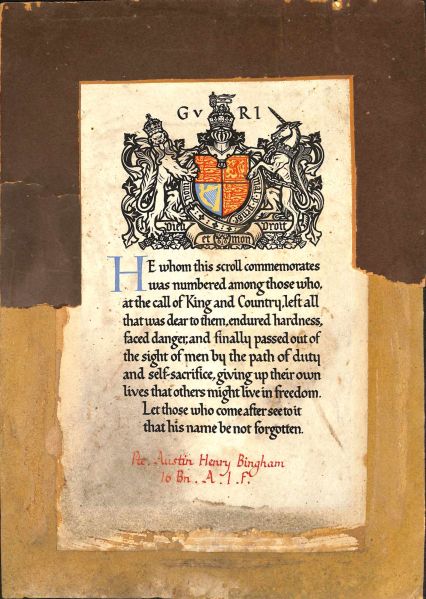 G v R I
Dieu et mon Droit
HE whom this scroll commemorates
was numbered among those who,
at the call of King and Country, left all
that was dear to them, endured hardness,
faced danger, and finally passed out of
the sight of men by the path of duty
and self-sacrifice, giving up their own
lives that others might live in freedom.
Let those who come after see to it
that his name be not forgotten.
Pte. Austin Henry Bingham
10 Bn. A. I. F.